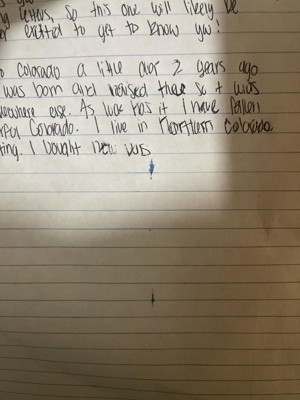 letters, so this one will likely be
excited to get to know you!
Colorado a little over 2 years ago
was born and raised there so it was
else. As luck has it I have fallen
Colorado. I live in Northern Colorado
I bought